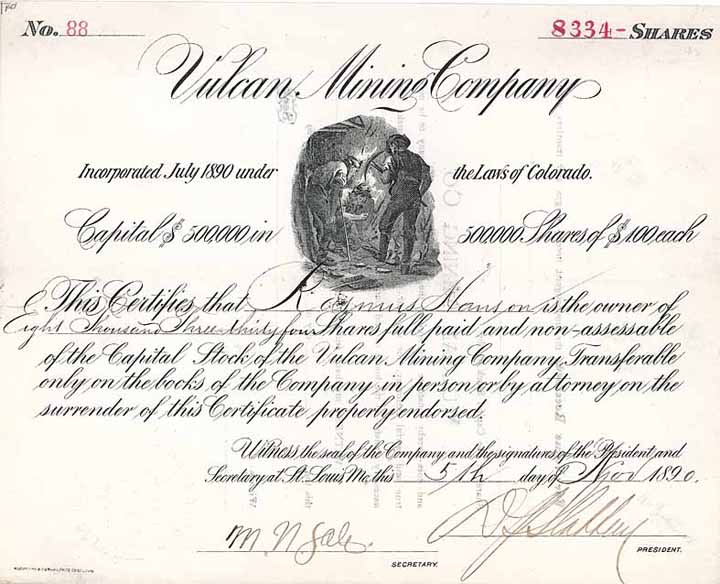 No. 88
8334- SHARES
Vulcan Mining Company
Incorporated July 1890 under the Laws of Colorado.
Capital $ 500,000 in 500,000 Shares of $ 1.00 each
This Certifies that Hanson is the owner of
Eight Thousand Three thirty four Shares full paid and non-assessable
of the Capital Stock of the Vulcan Mining Company, Transferable
only on the books of the Company in person or by attorney on the
surrender of this Certificate properly endorsed.
Witness the seal of the Company and the signatures of the President and
Secretary at St. Louis Mo, this 5th day of Nov 1890.
M N Gale.
SECRETARY.
PRESIDENT.